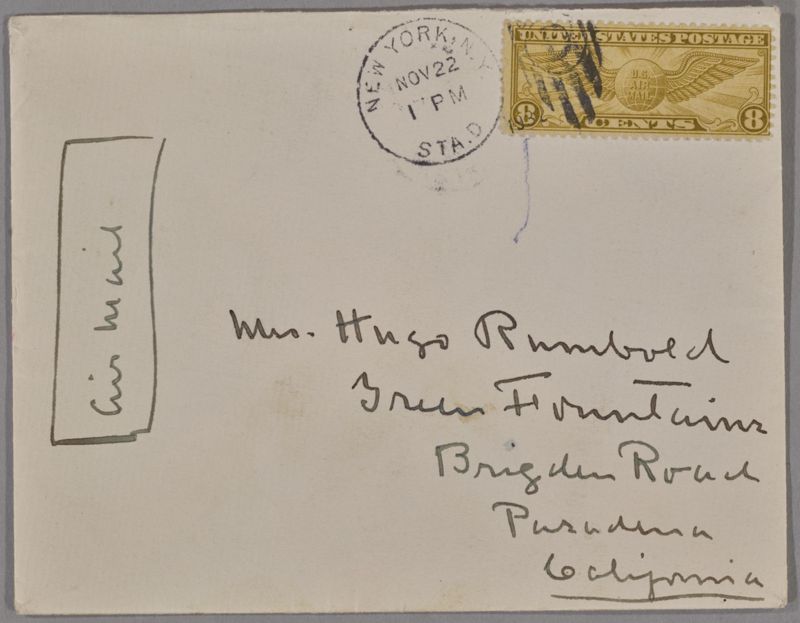 NEW YORK, N.Y.
NOV 22
1 PM
STA. D
UNITED STATES POSTAGE
U.S.
AIR
MAIL
8 CENTS 8
Air Mail
Mrs. Hugo Rumbold
Green Fountains
Brigden Road
Pasadena
California